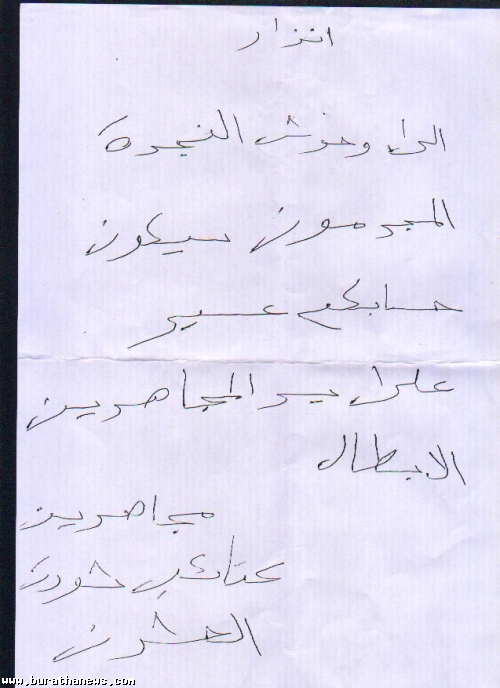 انزار
الى وحوش النجدة
المجرمون سيكون
حسابكم عسير
على يد المجاهدين
الابطال
مجاهدين
كتائب ثورة
العشرين
www.burathanews.com